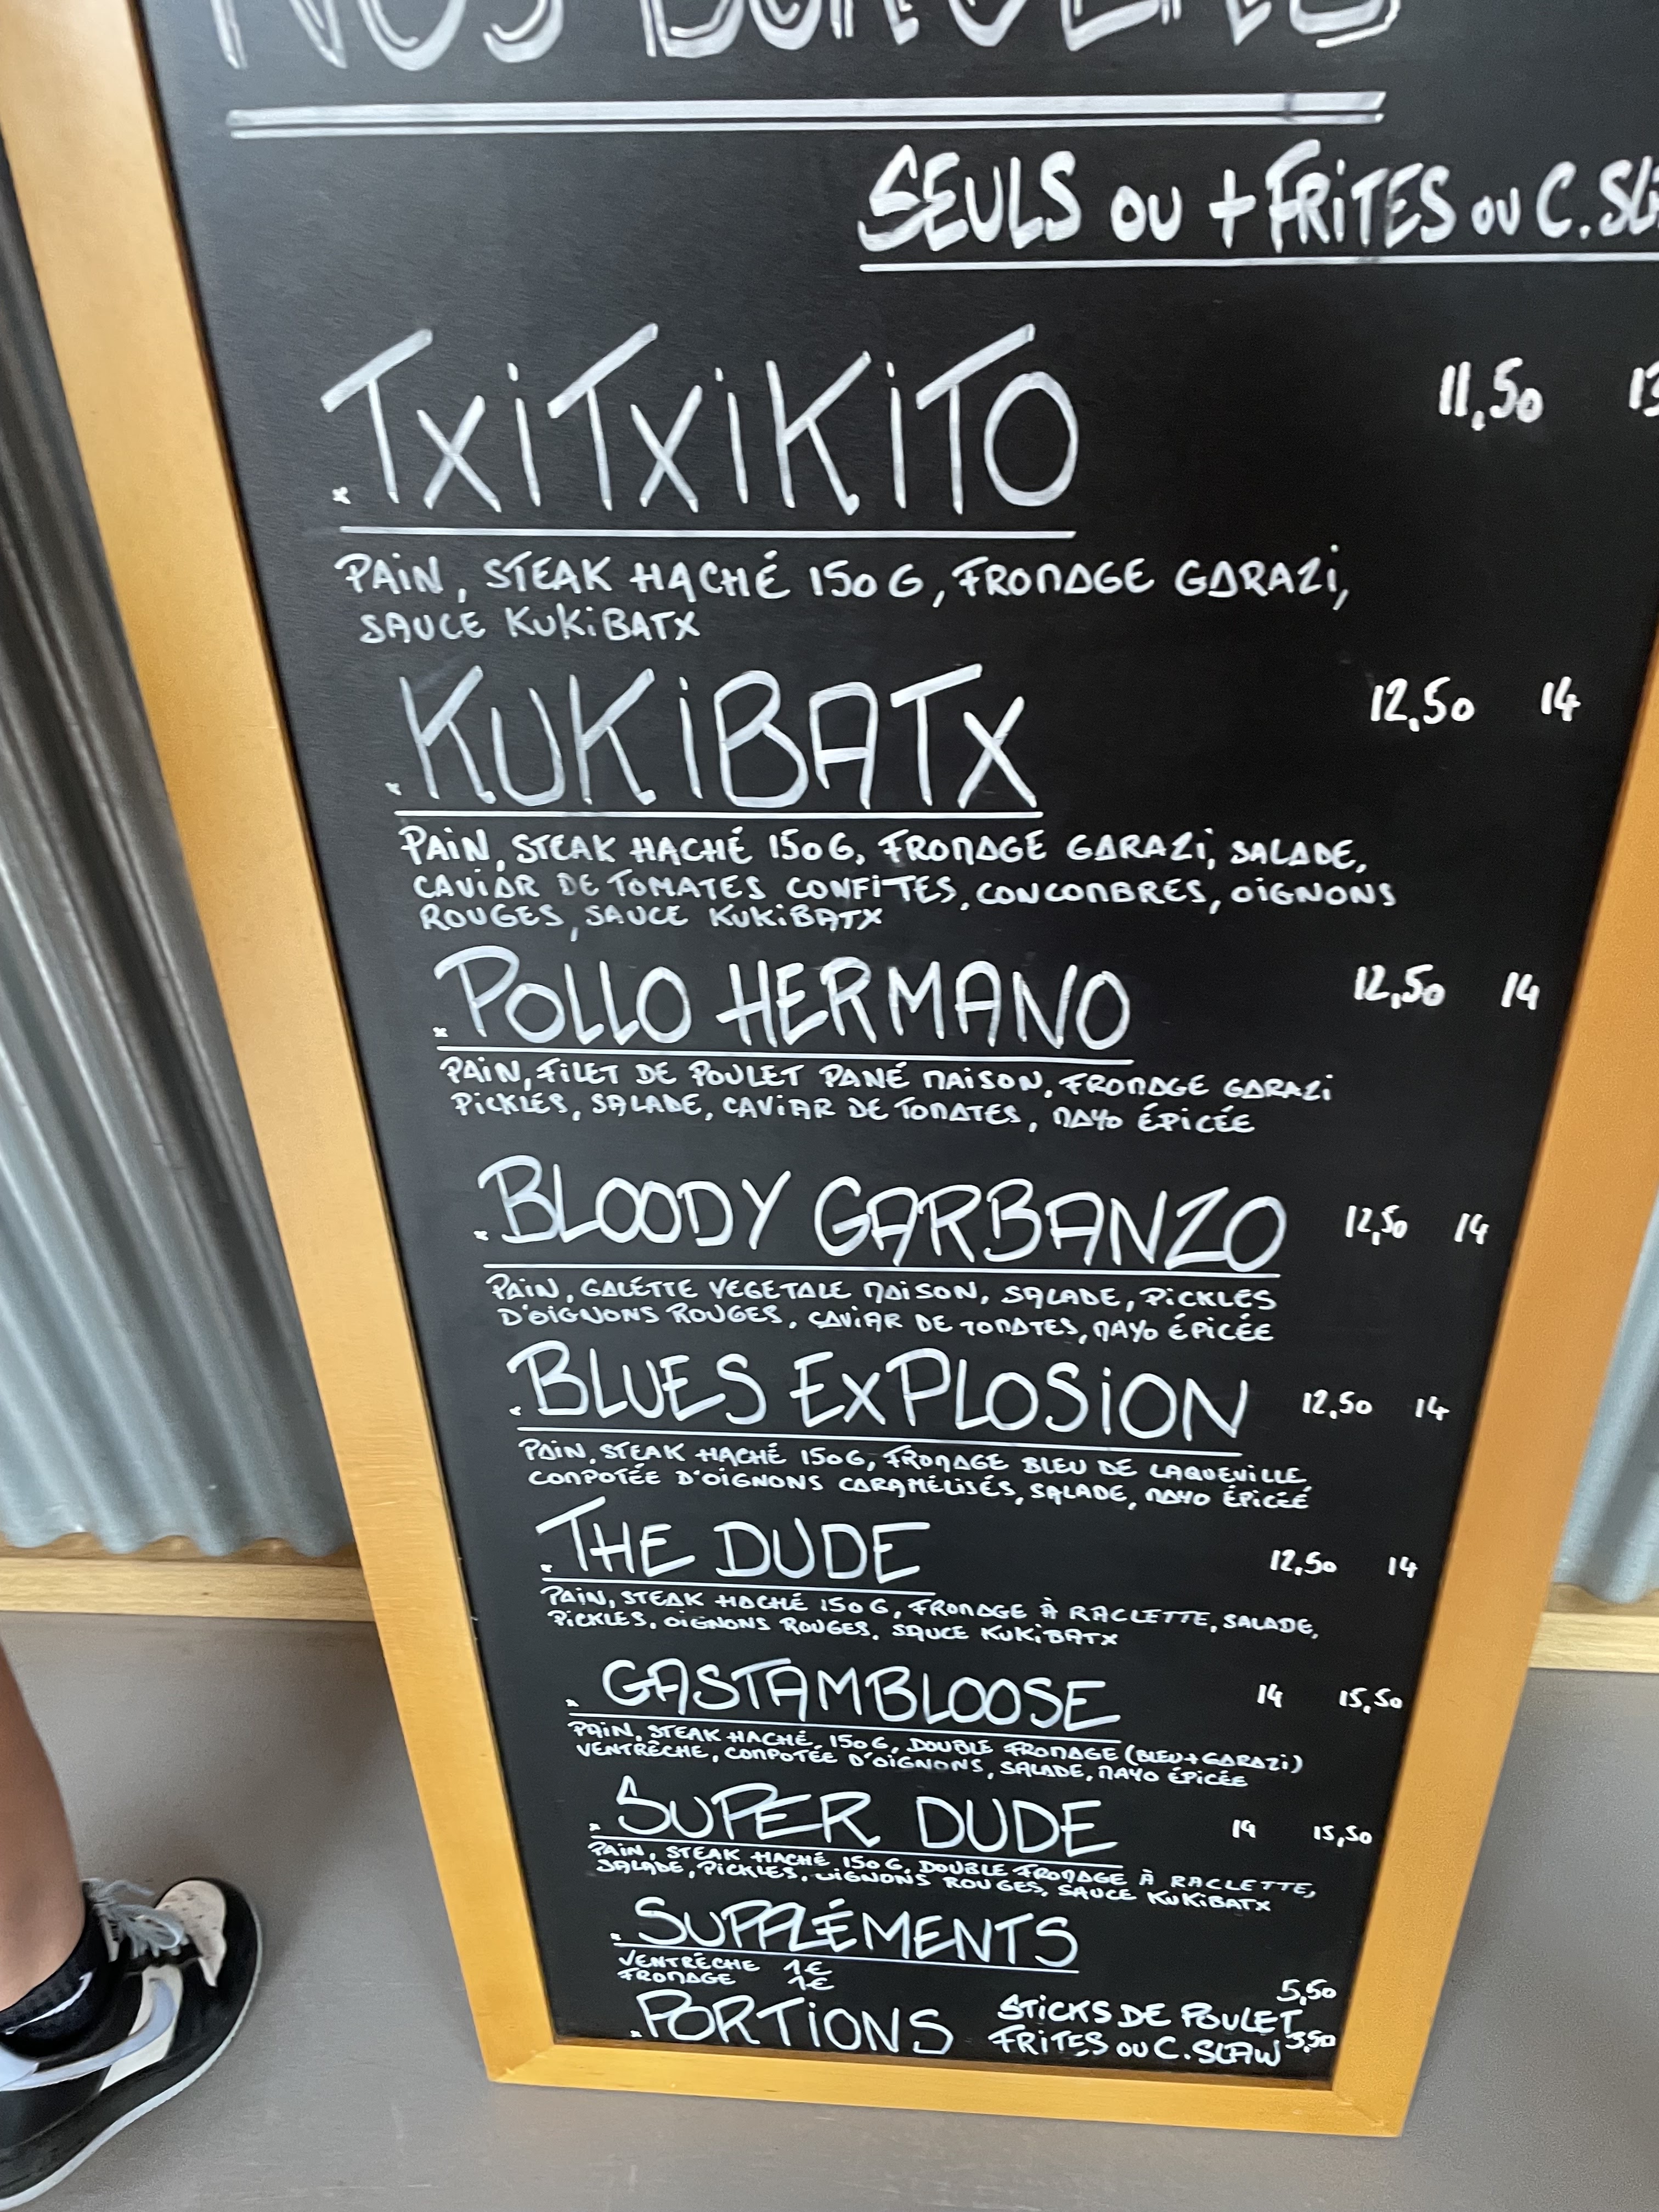 NOS BURGERS
SEULS OU + FRITES OU C.SL
TXiTXiKiTO 11,50 13
PAiN, STEAK HACHÉ 150G, FROMAGE GARAZi,
SAUCE KUKiBATX
KUKiBATX 12,50 14
PAiN, STEAK HACHÉ 150G, FROMAGE GARAZi, SALADE,
CAViAR DE TOMATES CONFiTES, CONCOMBRES, OiGNONS
ROUGES, SAUCE KUKiBATX
POLLO HERMANO 12,50 14
PAiN, FiLET DE POULET PANÉ MAiSON, FROMAGE GARAZi
PiCKLES, SALADE, CAViAR DE TOMATES, MAYO ÉPiCÉE
BLOODY GARBANZO 12,50 14
PAiN, GALETTE VEGETALE MAiSON, SALADE, PiCKLES
D'OiGNONS ROUGES, CAViAR DE TOMATES, MAYO ÉPiCÉE
BLUES EXPLOSiON 12,50 14
PAiN, STEAK HACHÉ 150G, FROMAGE BLEU DE LAQUEViLLE,
COMPOTÉE D'OiGNONS CARAMÉLiSÉS, SALADE, MAYO ÉPiCÉE
THE DUDE 12,50 14
PAiN, STEAK HACHÉ 150G, FROMAGE À RACLETTE, SALADE,
PiCKLES, OiGNONS ROUGES, SAUCE KUKiBATX
GASTAMBLOOSE 14 15,50
PAiN, STEAK HACHÉ, 150G, DOUBLE FROMAGE (BLEU+GARAZi)
VENTRÊCHE, COMPOTÉE D'OiGNONS, SALADE, MAYO ÉPiCÉE
SUPER DUDE 14 15,50
PAiN, STEAK HACHÉ 150G, DOUBLE FROMAGE À RACLETTE,
SALADE, PiCKLES, OiGNONS ROUGES, SAUCE KUKiBATX
SUPPLÉMENTS
VENTRÊCHE 1€
FROMAGE 1€
PORTiONS STiCKS DE POULET 5,50
FRiTES OU C.SLAW 3,50